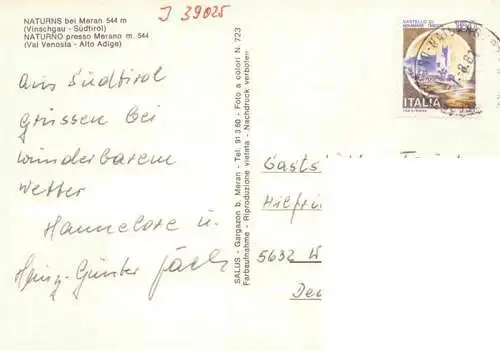 J 39025
NATURNS bei Meran 544 m
(Vinschgau - Südtirol)
NATURNO presso Merano m. 544
(Val Venosta - Alto Adige)
Aus Südtirol
Grüssen bei
wunderbarem
Wetter
Hannelore u.
Heinz-Günter
SALUS - Gargazon b. Meran - Tel. 91 3 60 - Foto a colori N. 723
Farbaufnahme - Riproduzione vietata - Nachdruck verboten
CASTELLO DI
ITALIA
Gastst
Hilfri
5632 W
Deu